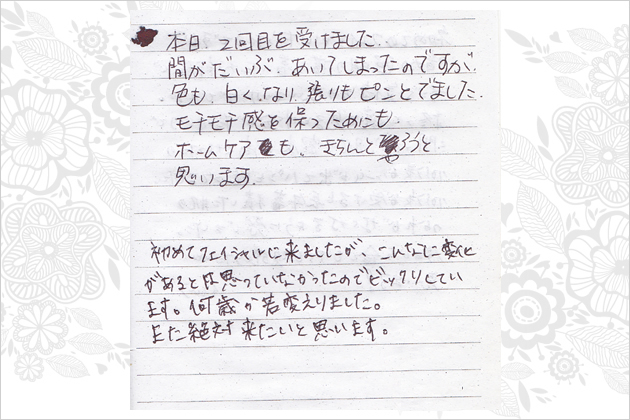 本日、2回目を受けました。
間がだいぶ、あいてしまったのですが、
色も、白く、なり、張りもピンとでました。
モチモチ感を保つためにも、
ホームケアも、きちんとやろうと
思います。
初めてフェイシャルに来ましたが、こんなに変化
があるとは思っていなかったのでビックリしてい
ます。何歳か若変えりました。
また絶対来たいと思います。